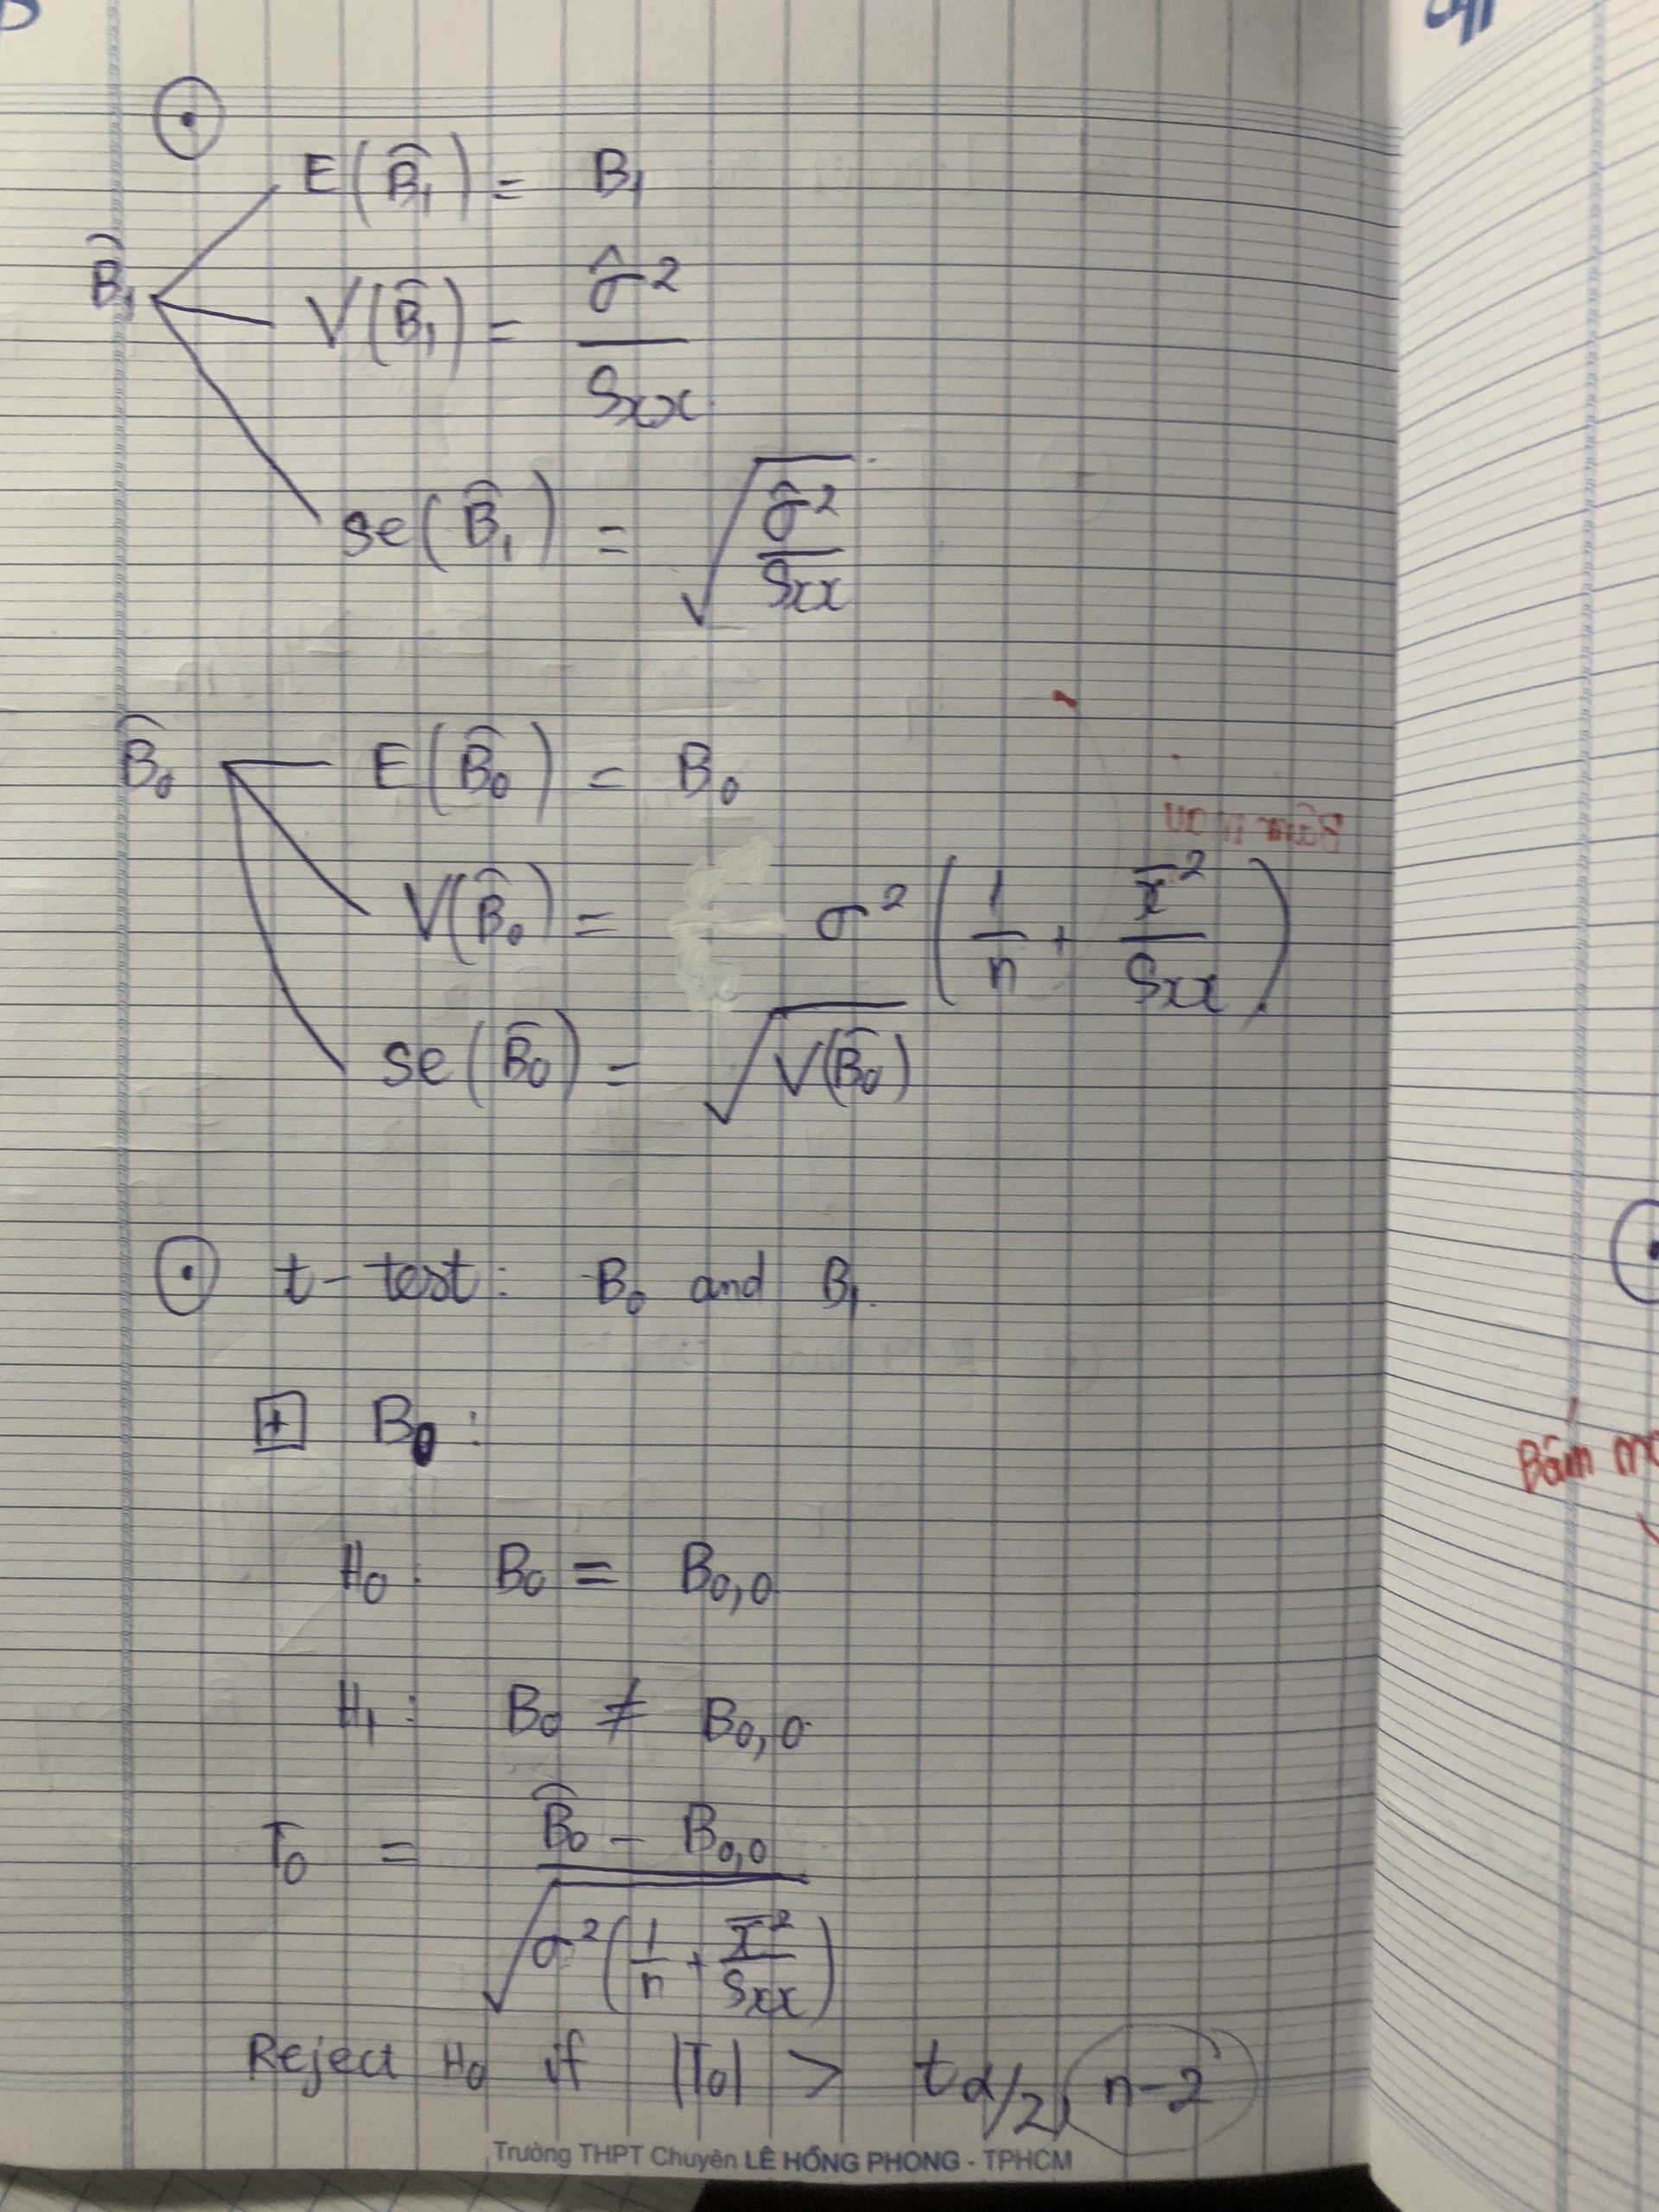 E(B̂₁) = B₁
B̂₁
V(B̂₁) = σ̂² / Sxx
se(B̂₁) = √(σ̂² / Sxx)
B̂₀ E(B̂₀) = B₀
V(B̂₀) = σ² (1/n + x̄²/Sxx)
se(B̂₀) = √V(B̂₀)
⊙ t-test: B₀ and B₁.
⊞ B₀:
H₀: B₀ = B₀,₀
H₁: B₀ ≠ B₀,₀
T₀ = (B̂₀ - B₀,₀) / √(σ² (1/n + x̄²/Sxx))
Reject H₀ if |T₀| > t α/2, n-2
Trường THPT Chuyên LÊ HỒNG PHONG - TPHCM
Bấm